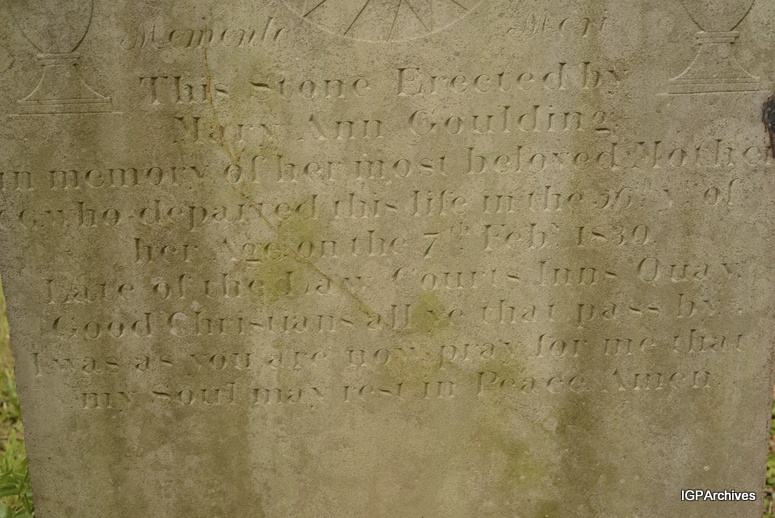 Memento Mori
This Stone Erected by
Mary Ann Goulding
in memory of her most beloved Mother
who departed this life in the 56th yr of
her Age on the 7th Feby 1830.
Late of the Law Courts Inns Quay.
Good Christians all ye that pass by
I was as you are now pray for me that
my Soul may rest in Peace Amen
IGPArchives